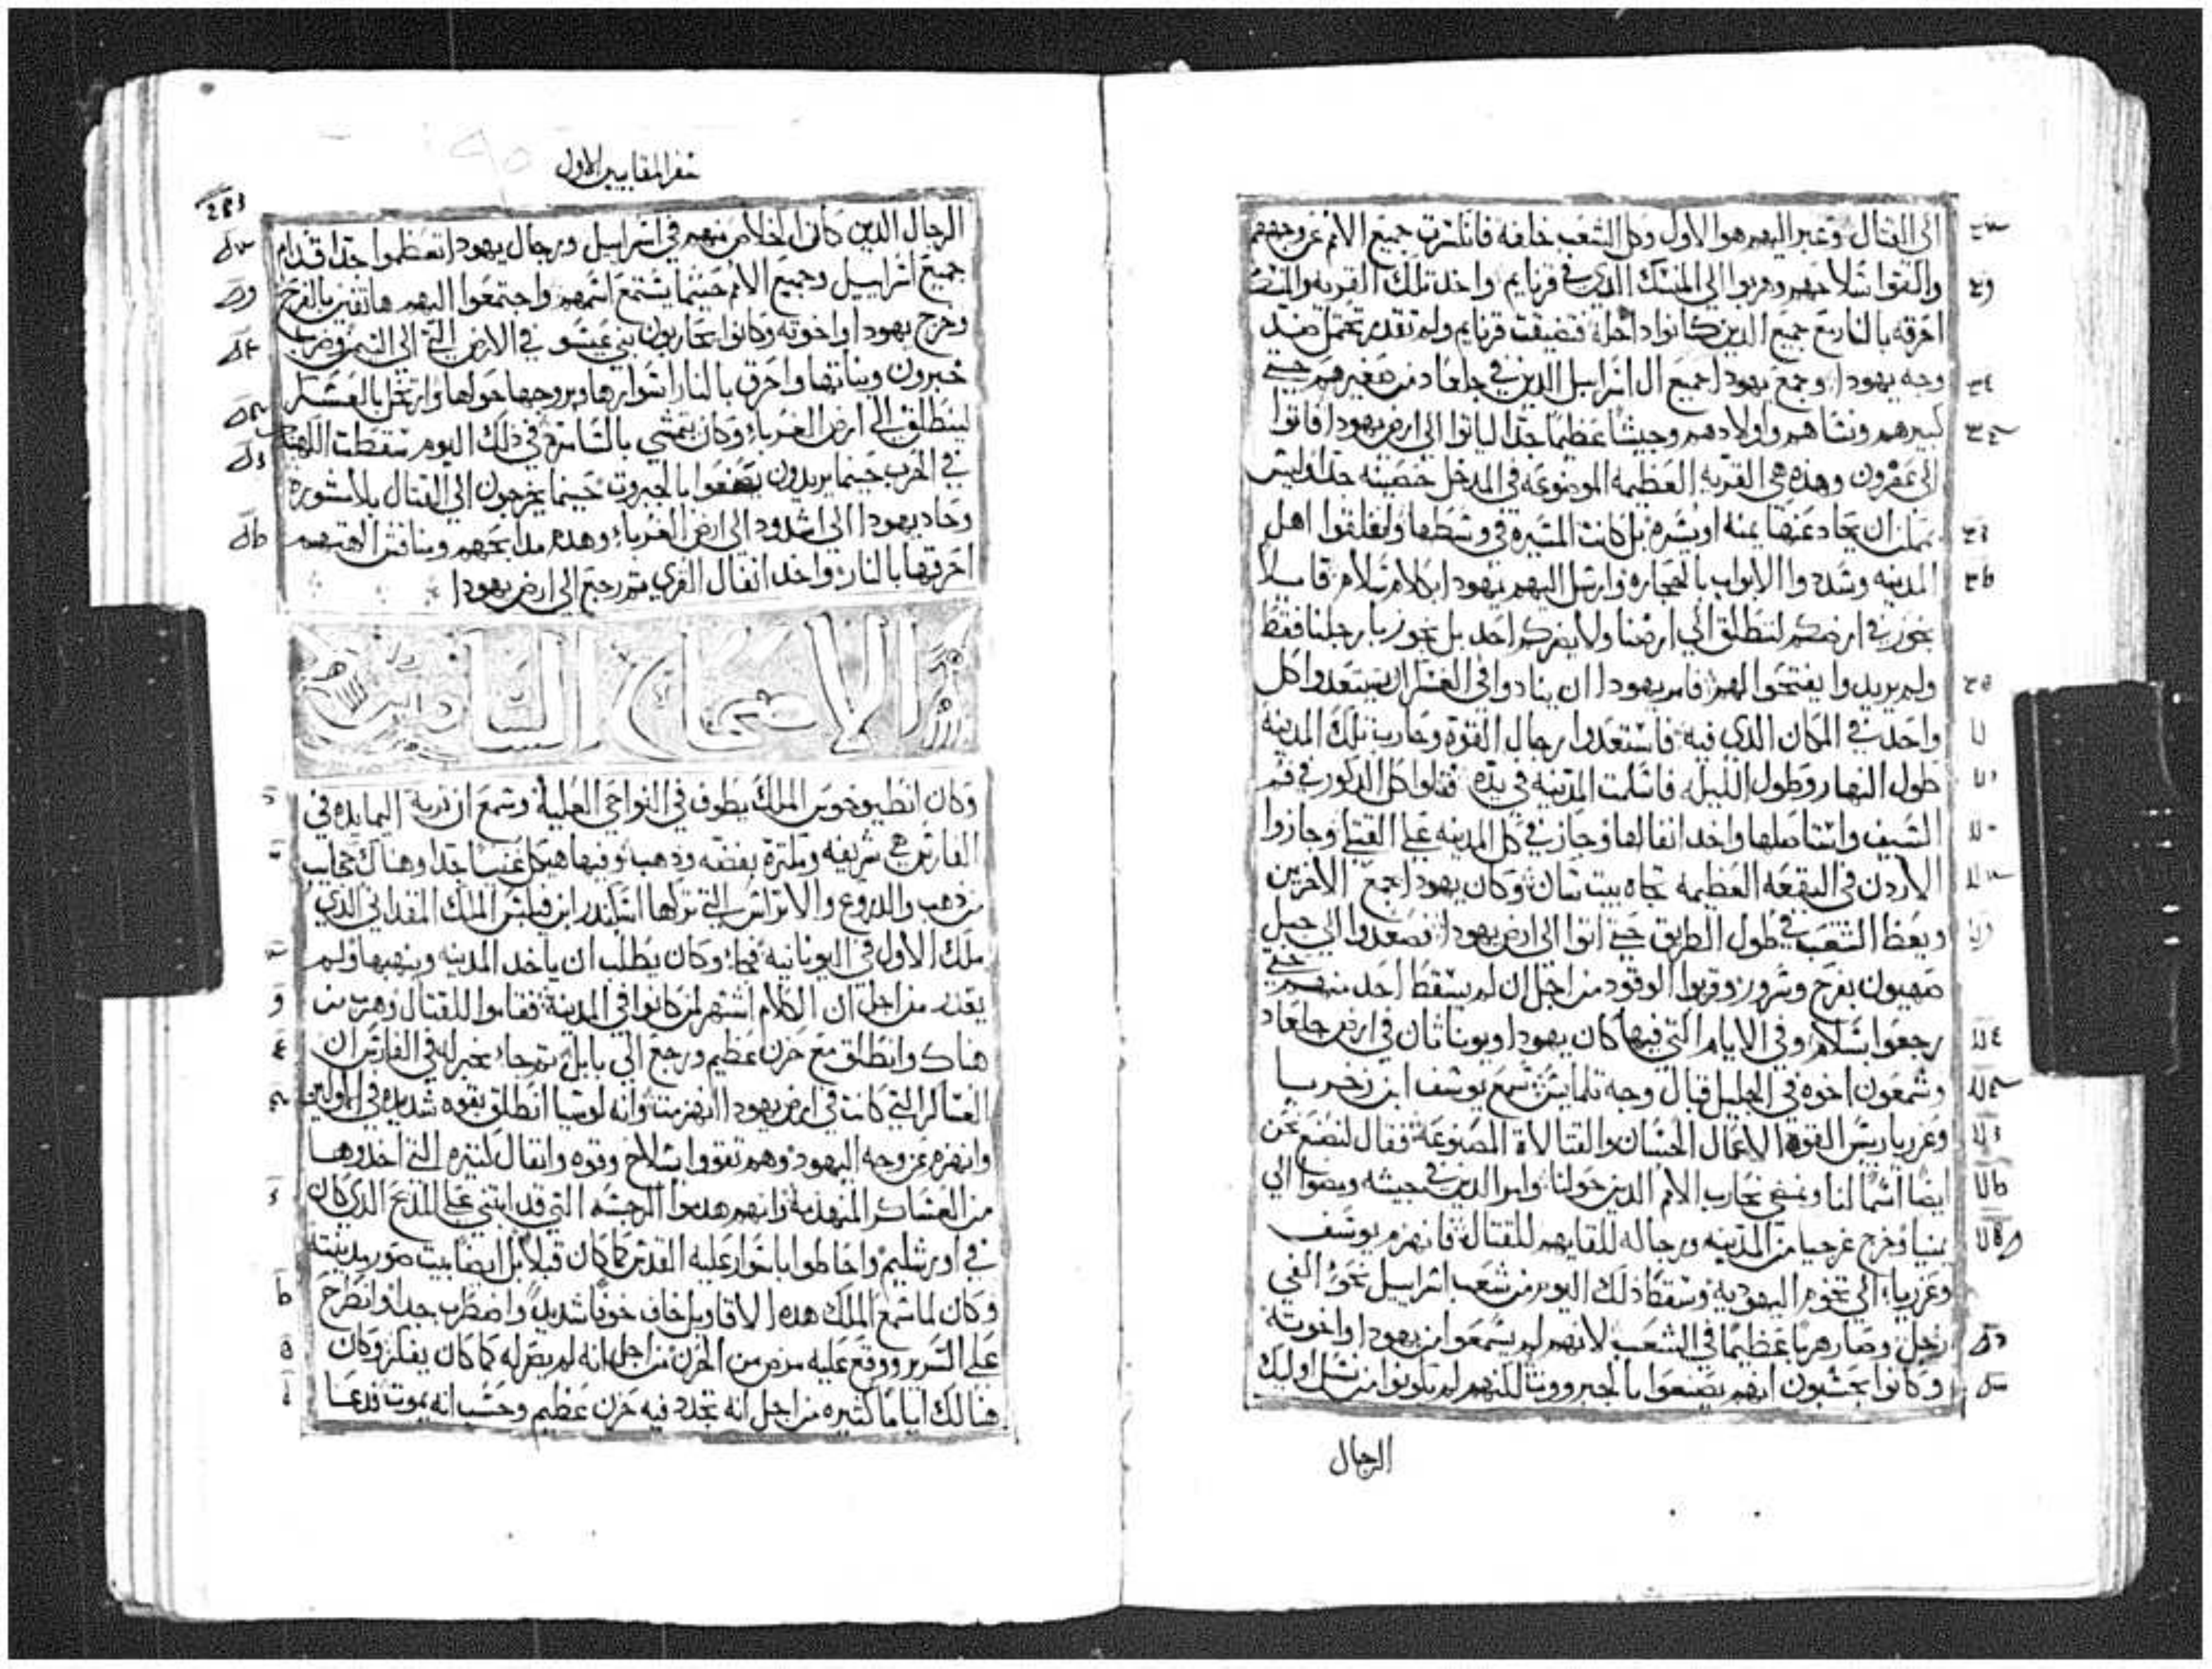 الى القتال وعبر اليهم هو الاول وكل الشعب خلفه فانكسرت جميع الامم عن وجههم
والقوا سلاحهم وهربوا الى المنسك الذي في قرنايم واخد تلك القريه والمنسك
احرقه بالنار مع جميع الدين كانوا داخله فتضيقت قرنايم ولم تقدر تحتمل ضد
وجه يهودا وجمع يهودا جميع ال اسراييل الدين في جلعاد من صغيرهم حتى
كبيرهم ونساهم واولادهم وجيشا عظيما جدا لياتوا الى ارض يهودا فاتوا
الى عفرون وهده هي القريه العظيمه الموضوعه في المدخل حصينه جدا وليس
يمكن ان يحاد عنها يمنه او يسره بل كانت المسيره في وسطها ولغلقوا اهل
المدينه وسدوا الابواب بالحجاره وارسل اليهم يهودا بكلام سلام قايلا
نجوز في ارضكم لننطلق الى ارضنا ولا يضركم احد بل نجوز بارجلنا فقط
ولم يريدوا يفتحوا لهم فامر يهودا ان ينادوا في العسكر ان يستعدوا كل
واحد في المكان الدي فيه فاستعدوا رجال القوة وحارب تلك المدينه
طول النهار وطول الليل فاسلمت المدينه في يده فقتلوا كل الدكور في فم
السيف واستاصلها واخد انفالها وجاز في كل المدينه على القتلى وجازوا
الاردن في البقعه العظيمه تجاه بيت سان وكان يهودا يجمع الاخرين
ويعظ الشعب في طول الطريق حتى اتوا الى ارض يهودا فصعدوا الى جبل
صهيون بفرح وسرور وقربوا الوقود من اجل ان لم يسقط احد منهم حتى
رجعوا بسلام وفي الايام التي فيها كان يهودا ويوناثان في ارض جلعاد
وشمعون اخوه في الجليل قبال وجه تلمايس سمع يوسف ابن زخريا
وعزريا ريس القوه الاعمال الحسان والقتالاة المصنوعة فقال لنصنع نحن
ايضا اسما لنا ونمضي نحارب الامم الدين حولنا وامر الدين في جيشه ومضوا الى
يمنيا وخرج غرجيا من المدينه ورجاله للقايهم للقتال فانهزم يوسف
وعزريا الى تخوم اليهوديه وسقط دلك اليوم من شعب اسراييل نحو الفي
رجل وصار هربا عظيما في الشعب لانهم لم يسمعوا من يهودا واخوته
وكانوا يحسبون انهم يصنعوا بالجبروت لكنهم لم يكونوا من نسل اوليك
الرجال
سفر المقابيين الاول
الرجال الدين كان الخلاص منهم في اسراييل ورجال يهودا تعظموا جدا قدام
جميع اسراييل وجميع الامم حيثما يستمع اسمهم واجتمعوا اليهم هاتفين بالفرح
وخرج يهودا واخوته وكانوا يحاربون بني عيسو في الارض التي الى التيمن وضرب
خبرون وبناتها واحرق بالنار اسوارها وبروجها حولها وارتحل بالعسكر
لينطلق الى ارض الغرباء وكان يتمشي بالسامره في دلك اليوم سقطت الكهنة
في الحرب حينما يريدون يصنعوا بالجبروت حينما يخرجون الى القتال بلا مشوره
وحاد يهودا الى اشدود الى ارض الغرباء وهدم مدابحهم ومنافس الهتهم
احرقها بالنار واخد انفال القرى ثم رجع الى ارض يهودا
الاصحاح السادس
وكان انطيوخوس الملك يطوف في النواحي العلية وسمع ان قرية اليمايده في
الفارس هي شريفه ومكترة بفضه ودهب وفيها هيكل غنيا جدا وهناك حجاب
من دهب والدروع والاتراس التي تركها اسكندر ابن فيلبس الملك المقداني الدي
ملك الاول في اليونانية فجاء وكان يطلب ان ياخد المدينه وينهبها ولم
يقدر من اجل ان الكلام اشتهر لمن كانوا في المدينة فقاموا للقتال وهرب من
هناك وانطلق مع حزن عظيم ورجع الى بابل ثم جاء مخبر له في الفارس ان
العساكر التي كانت في ارض يهودا انهزمت وانه لوسيا انطلق بقوه شديده في الاولين
وانهزم عن وجه اليهود وهم تقووا بسلاح وقوه وانفال كتيره التي اخدوها
من العساكر المنهدمة وانهم هدموا الرجسه التي قد ابتني على المدبح الدي كان
في اورشليم واحاطوا باسوار عليه القدس كما كان قبلا بل ايضا بيت صور مدينته
وكان لما سمع الملك هده الاقاويل خاف خوفا شديدا واضطرب جدا وانطرح
على السرير ووقع عليه مرض من الحزن من اجل انه لم يصر له كما كان يفكر وكان
هنالك اياما كتيره من اجل انه تجدد فيه حزن عظيم وحسب انه يموت فدعا